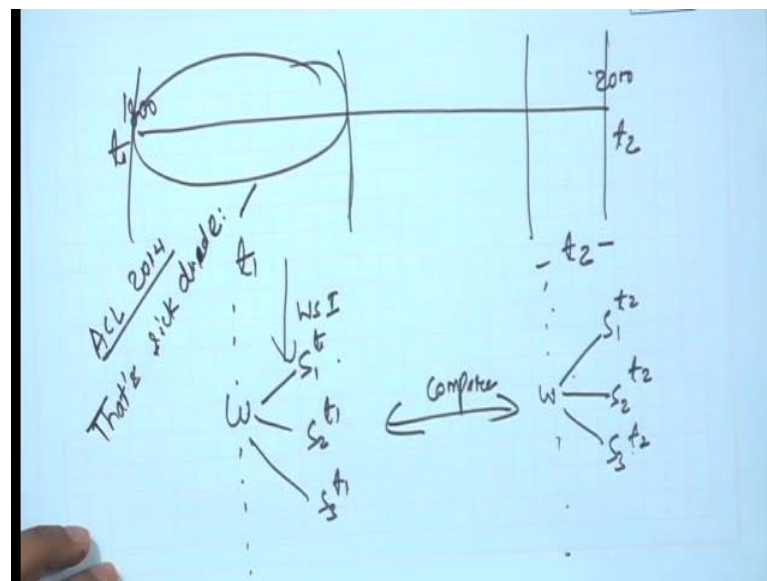 1800
2000
t1
t2
t1
- t2 -
ACL 2014
That's sick dude:
WSI
S1 t1
W
S2 t1
S3 t1
Compare
S1 t2
W
S2 t2
S3 t2